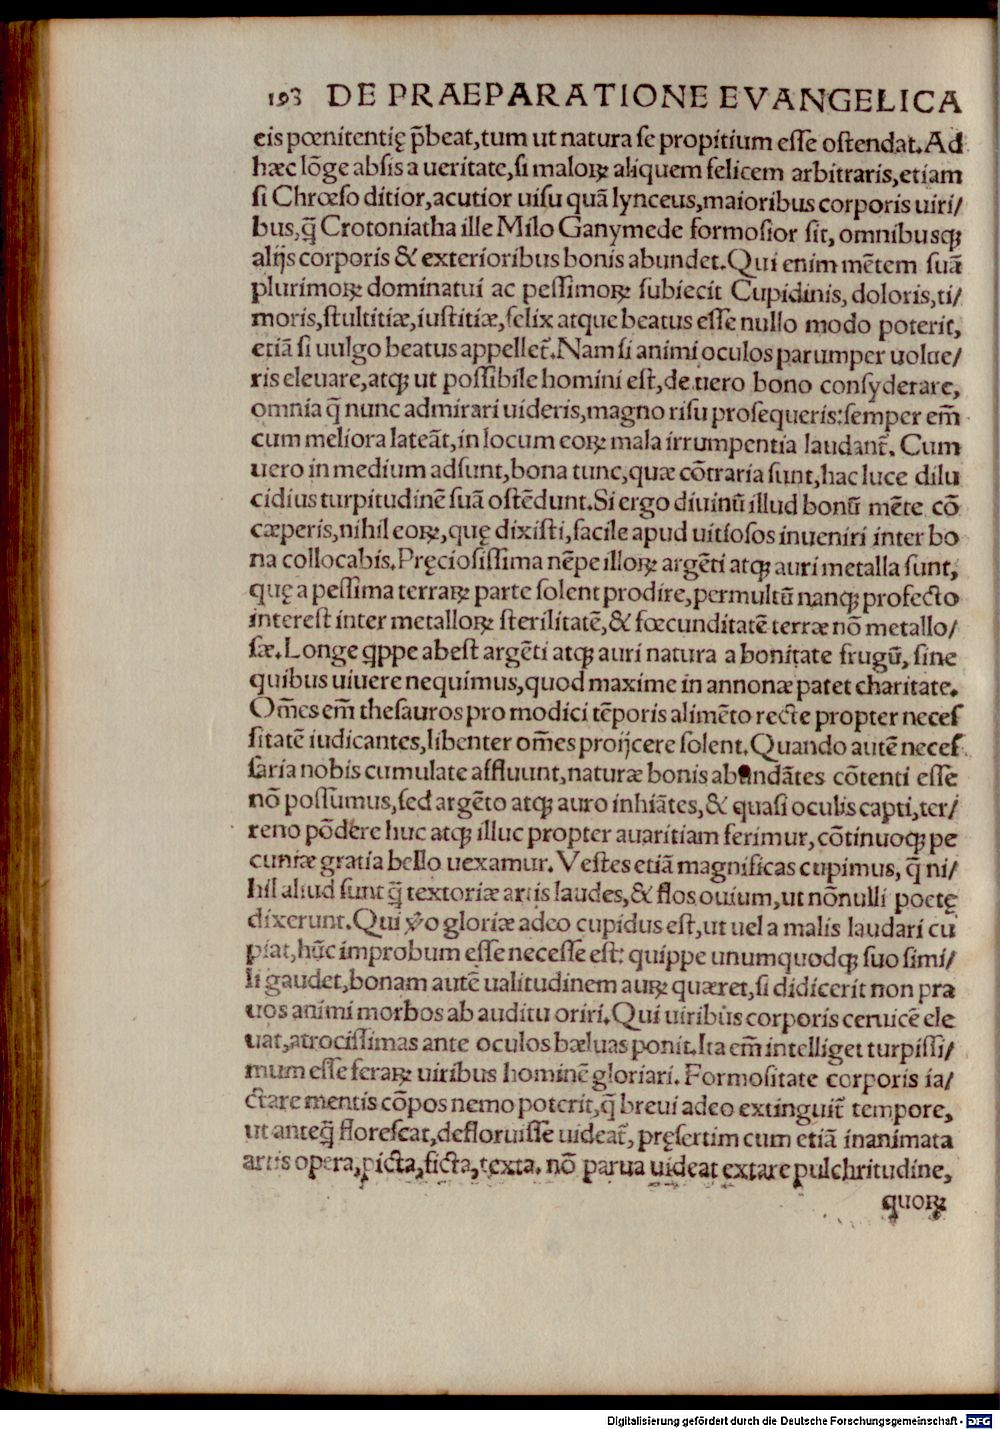 193 DE PRAEPARATIONE EVANGELICA
eis pœnitentię p̄beat,tum ut natura se propitium esse ostendat.Ad
hæc lōge absis a ueritate,si maloꝝ aliquem felicem arbitraris,etiam
si Chrœso ditior,acutior uisu quã lynceus,maioribus corporis uiri/
bus,q̄ Crotoniatha ille Milo Ganymede formosior sit, omnibusqꝫ
alijs corporis & exterioribus bonis abundet.Qui enim mētem suã
plurimoꝝ dominatui ac pessimoꝝ subiecit Cupidinis, doloris,ti/
moris,stultitiæ,iustitiæ,felix atque beatus esse nullo modo poterit,
etiã si uulgo beatus appellet̃.Nam si animi oculos parumper uolue/
ris eleuare,atqꝫ ut possibile homini est,de uero bono consyderare,
omnia q̄ nunc admirari uideris,magno risu prosequeris:semper em̃
cum meliora lateãt,in locum eoꝝ mala irrumpentia laudant̃. Cum
uero in medium adsunt,bona tunc,quæ cōtraria sunt,hac luce dilu
cidius turpitudinē suã ostēdunt.Si ergo diuinū illud bonū mēte cō
cæperis,nihil eoꝝ,quę dixisti,facile apud uitiosos inueniri inter bo
na collocabis.Pręciosissima nēpe illoꝝ argēti atqꝫ auri metalla sunt,
quę a pessima terraꝝ parte solent prodire,permultū nanqꝫ profecto
interest inter metalloꝝ sterilitatē,& fœcunditatē terræ nō metallo/
sæ.Longe q̄ppe abest argēti atqꝫ auri natura a bonitate frugū, sine
quibus uiuere nequimus,quod maxime in annonæ patet charitate.
Om̃es em̃ thesauros pro modici tēporis alimēto recte propter neces
sitatē iudicantes,libenter om̃es proijcere solent.Quando autē neces
saria nobis cumulate affluunt,naturæ bonis abundãtes cōtenti esse
nō possumus,sed argēto atqꝫ auro inhiãtes,& quasi oculis capti,ter/
reno pōdere huc atqꝫ illuc propter auaritiam ferimur, cōtinuoqꝫ pe
cuniæ gratia bello uexamur. Vestes etiã magnificas cupimus, q̄ ni/
hil aliud sunt q̄ textoriæ artis laudes,& flos ouium,ut nōnulli poetę
dixerunt.Qui ṽo gloriæ adeo cupidus est,ut uel a malis laudari cu
piat,hūc improbum esse necesse est: quippe unumquodqꝫ suo simi/
li gaudet,bonam autē ualitudinem auꝝ quæret,si didicerit non pra
uos animi morbos ab auditu oriri.Qui uiribus corporis ceruicē ele
uat,atrocissimas ante oculos bæluas ponit.Ita em̃ intelliget turpissi/
mum esse feraꝝ uiribus hominē gloriari. Formositate corporis ia/
ctare mentis cōpos nemo poterit,q̄ breui adeo extinguit̃ tempore,
ut anteq̄ florescat,defloruisse uideat̃, pręsertim cum etiã inanimata
artis opera,picta,ficta,texta. nō parua uideat extare pulchritudine,
quoꝝ
Digitalisierung gefördert durch die Deutsche Forschungsgemeinschaft - DFG